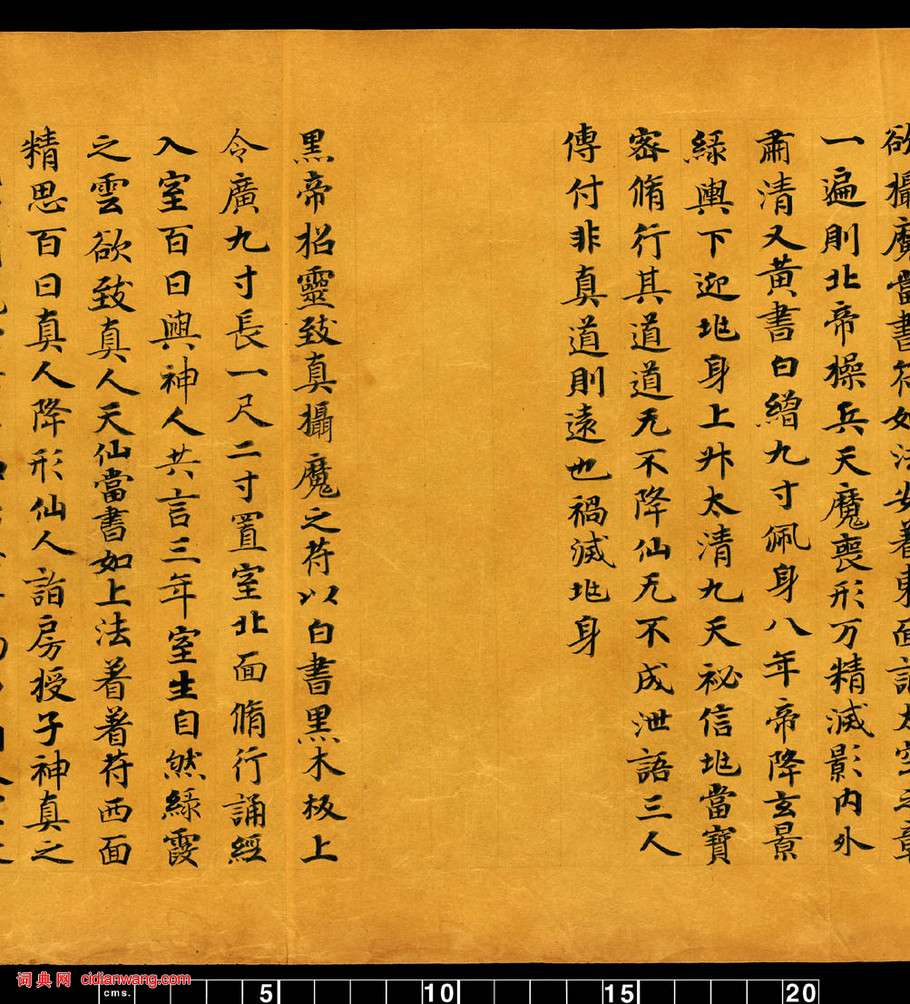 欲攝魔當書符如法安着東面誦太空之章
一遍則北帝操兵天魔喪形万精滅影內外
肅清又黃書白繒九寸佩身八年帝降玄景
緑輿下迎地身上升太清九天祕信地當寶
密脩行其道道无不降仙无不成泄語三人
傳付非真道則遠也禍滅地身
黑帝招靈致真攝魔之苻以白書黑木板上
令廣九寸長一尺二寸置室北面脩行誦經
入室百日與神人共言三年室生自然緑霞
之雲欲致真人天仙當書如上法着着苻西面
精思百日真人降形仙人詣房授子神真之
词典网 cidianwang.com
cms. 5 10 15 20